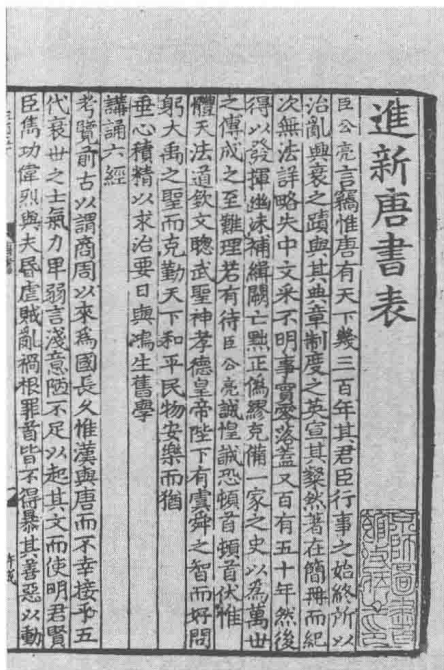 進新唐書表
臣公亮言竊惟唐有天下幾三百年其君臣行事之始終所以
治亂興衰之蹟與其典章制度之英宜其粲然著在簡冊而紀
次無法詳略失中文采不明事實零落蓋又百有五十年然後
得以發揮幽沬補緝闕亡黜正偽繆克備一家之史以為萬世
之傳成之至難理若有待臣公亮誠惶誠恐頓首頓首伏惟
體天法道欽文聰武聖神孝德皇帝陛下有虞舜之智而好問
躬大禹之聖而克勤天下和平民物安樂而猶
垂心積精以求治要日與鴻生舊學
講誦六經
考覽前古以謂商周以來爲國長久惟漢與唐而不幸接乎五
代衰世之士氣力卑弱言淺意陋不足以起其文而使明君賢
臣雋功偉烈與夫昬虐賊亂禍根罪首皆不得暴其善惡以動
京師圖書
館收藏之印